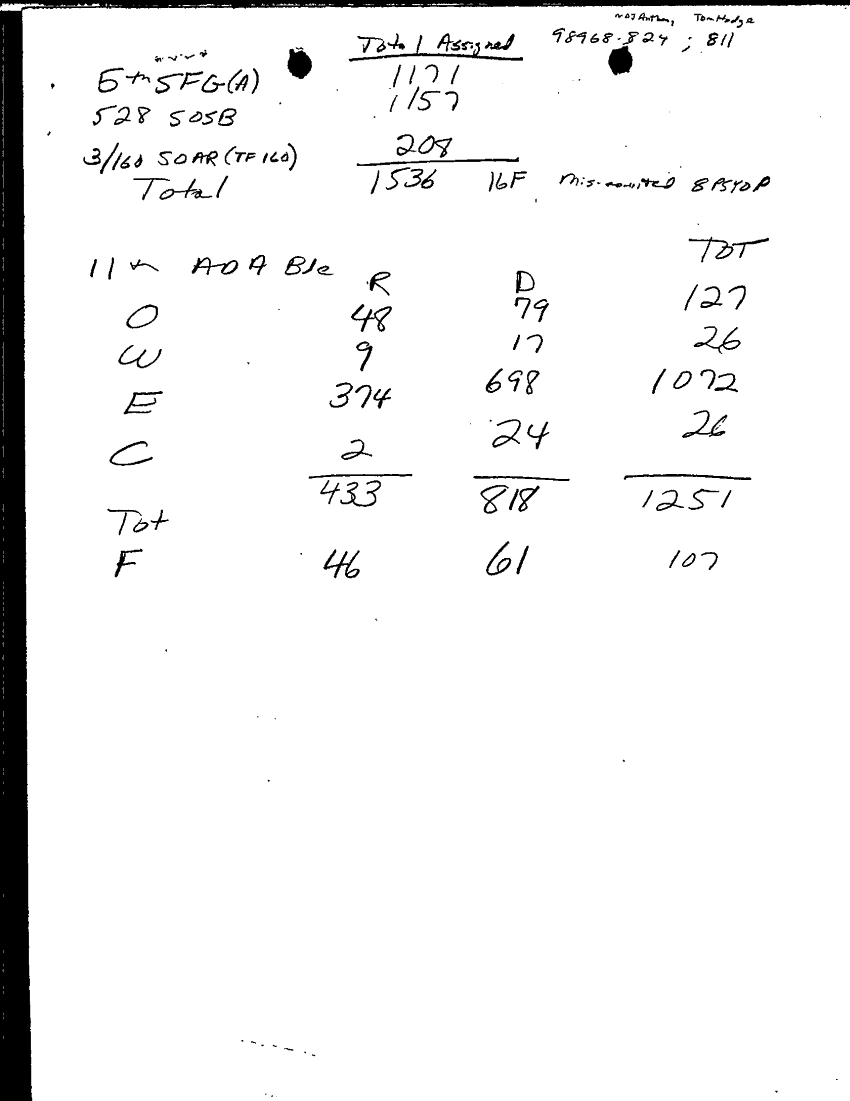 Tom Hodge
Total Assigned 98968-824 ; 811
5th SFG(A) 1171
528 SOSB 157
3/160 SOAR (TF160) 208
Total 1536 16F 8 PSYOP
TOT
11th ADA Bde R D
O 48 79 127
W 9 17 26
E 374 698 1072
C 2 24 26
433 818 1251
Tot
F 46 61 107